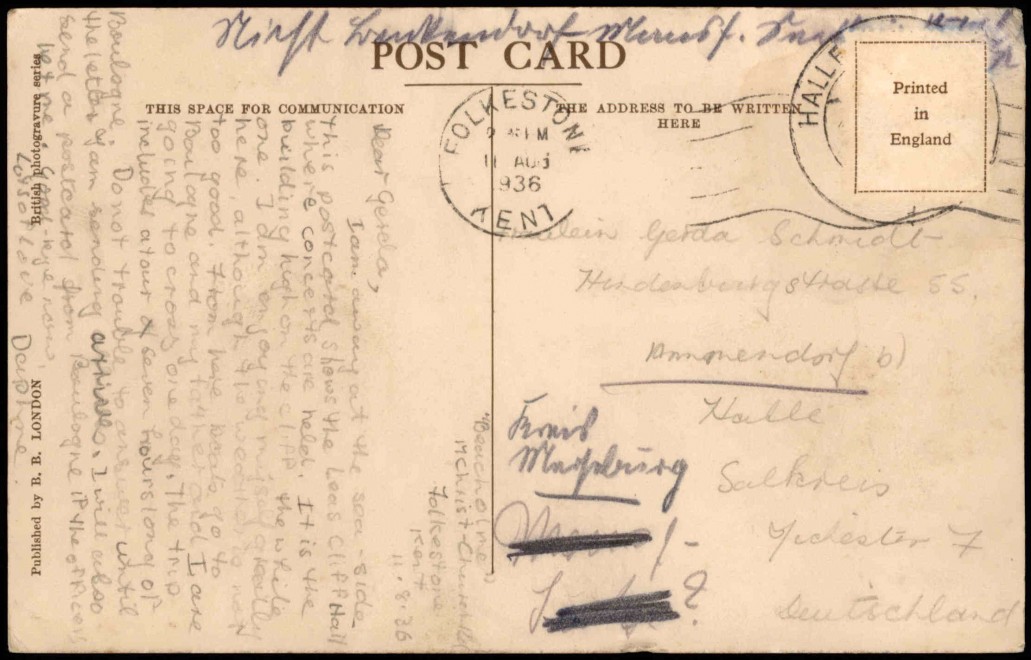 Nicht Benkendorf Mansf.
POST CARD
THIS SPACE FOR COMMUNICATION
THE ADDRESS TO BE WRITTEN
HERE
Printed
in
England
FOLKESTONE
11 AUG
1936
KENT
HALLE
"Beacholme"
14 Christ-Church Rd
Folkestone
Kent
11.8.36
Dear Gerda,
I am away at the sea-side.
This postcard shows the Leas Cliff Hall
where concerts are held. It is the
building high on the cliff the white
one. I am enjoying myself greatly
here, although the weather is not
too good. From here boats go to
Boulogne and my father and I are
going to cross one day. The trip
includes a tour of seven hours long of
Boulogne. Do not trouble to answer until
the letter I am sending arrives. I will also
send a postcard from Boulogne if the officers
let me. Good-bye now,
Lots of love Daphne
British photogravure series
Published by B. B. LONDON
Fräulein Gerda Schmidt
Hindenburgstrasse 55.
Ammendorf b)
Halle
Saalkreis
Deutschland
Kreis
Merseburg